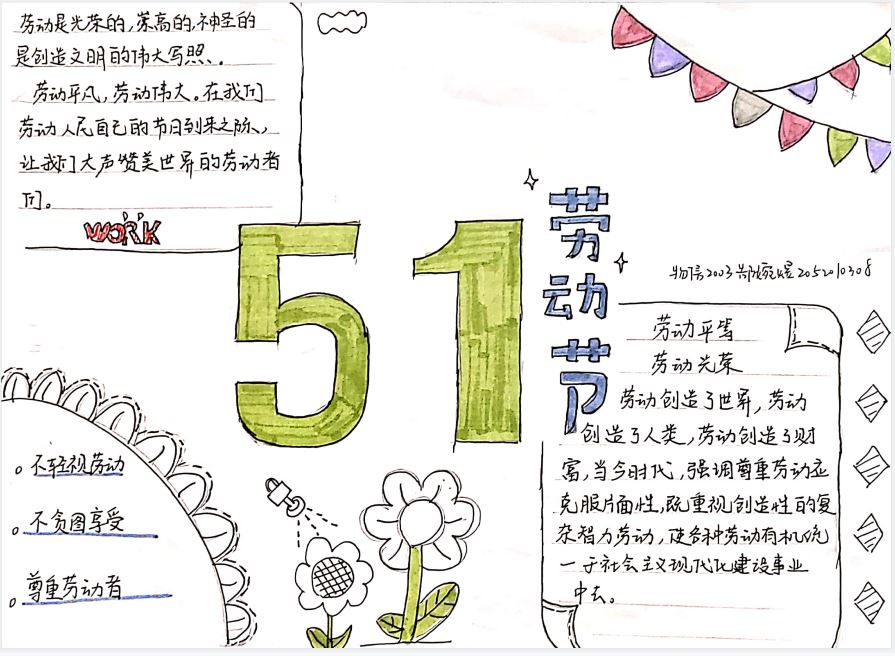 劳动是光荣的,崇高的,神圣的
是创造文明的伟大写照、。
劳动平凡,劳动伟大。在我们
劳动人民自己的节日到来之际、,
让我们大声赞美世界的劳动者
们。
WORK
51
劳动节
物信2003 2052010308
劳动平等
劳动光荣
劳动创造了世界,劳动
创造了人类,劳动创造了财
富,当今时代,强调尊重劳动应
克服片面性,既重视创造性的复
杂智力劳动,使各种劳动有机统
一于社会主义现代化建设事业
中去。
不轻视劳动
不贪图享受
尊重劳动者